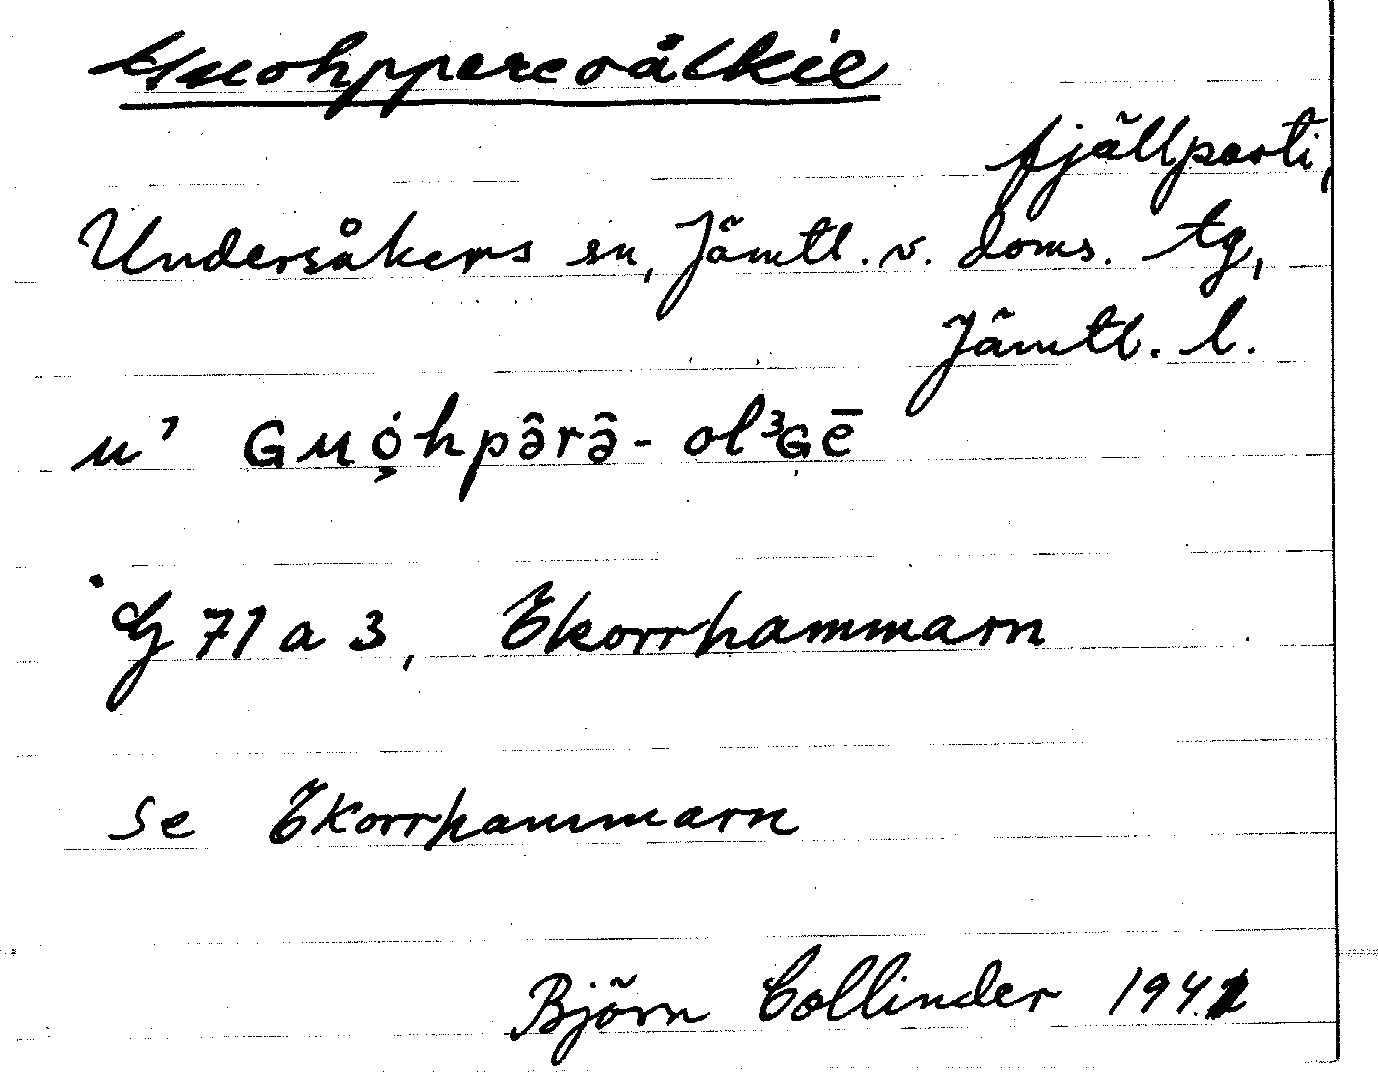 Guohpperevålkie
fjällparti,
Undersåkers sn, Jämtl. v. doms. tg,
Jämtl. l.
u' Guȯ̗hpə̂rə̂- ol³Gē
G 71 a 3, Ekorrhammarn
se Ekorrhammarn
Björn Collinder 1942